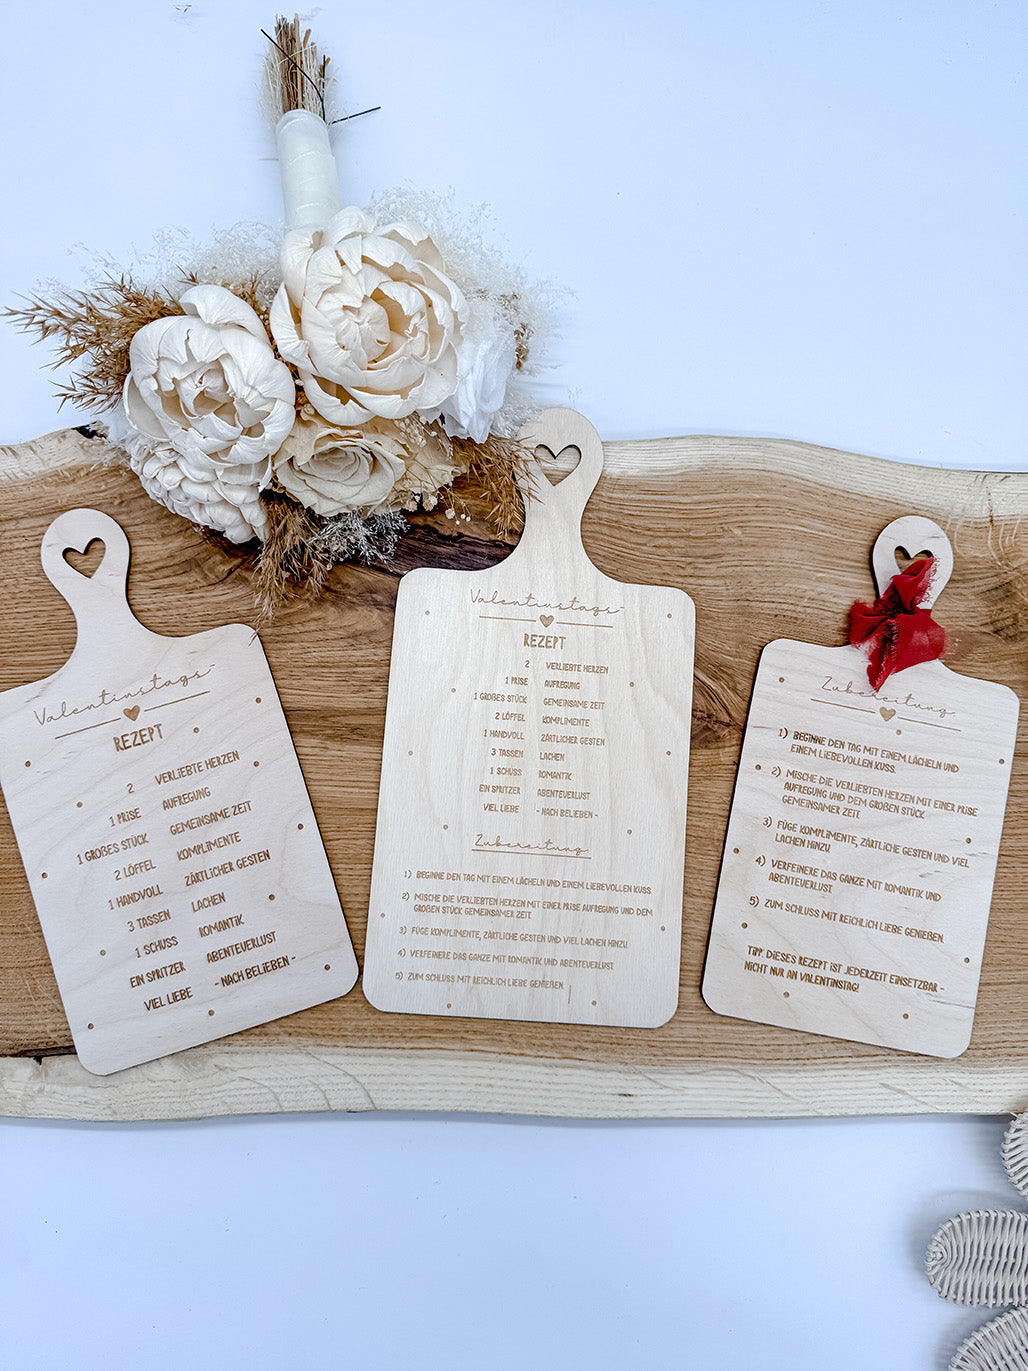 Valentinstags-
REZEPT
2 VERLIEBTE HERZEN
1 PRISE AUFREGUNG
1 GROßES STÜCK GEMEINSAME ZEIT
2 LÖFFEL KOMPLIMENTE
1 HANDVOLL ZÄRTLICHER GESTEN
3 TASSEN LACHEN
1 SCHUSS ROMANTIK
EIN SPRITZER ABENTEUERLUST
VIEL LIEBE - NACH BELIEBEN -
Valentinstags-
REZEPT
2 VERLIEBTE HERZEN
1 PRISE AUFREGUNG
1 GROßES STÜCK GEMEINSAME ZEIT
2 LÖFFEL KOMPLIMENTE
1 HANDVOLL ZÄRTLICHER GESTEN
3 TASSEN LACHEN
1 SCHUSS ROMANTIK
EIN SPRITZER ABENTEUERLUST
VIEL LIEBE - NACH BELIEBEN -
Zubereitung
1) BEGINNE DEN TAG MIT EINEM LÄCHELN UND EINEM LIEBEVOLLEN KUSS.
2) MISCHE DIE VERLIEBTEN HERZEN MIT EINER PRISE AUFREGUNG UND DEM
GROßEN STÜCK GEMEINSAMER ZEIT.
3) FÜGE KOMPLIMENTE, ZÄRTLICHE GESTEN UND VIEL LACHEN HINZU.
4) VERFEINERE DAS GANZE MIT ROMANTIK UND ABENTEUERLUST.
5) ZUM SCHLUSS MIT REICHLICH LIEBE GENIEßEN.
Zubereitung
1) BEGINNE DEN TAG MIT EINEM LÄCHELN UND
EINEM LIEBEVOLLEN KUSS.
2) MISCHE DIE VERLIEBTEN HERZEN MIT EINER PRISE
AUFREGUNG UND DEM GROßEN STÜCK
GEMEINSAMER ZEIT.
3) FÜGE KOMPLIMENTE, ZÄRTLICHE GESTEN UND VIEL
LACHEN HINZU.
4) VERFEINERE DAS GANZE MIT ROMANTIK UND
ABENTEUERLUST.
5) ZUM SCHLUSS MIT REICHLICH LIEBE GENIEßEN.
TIPP: DIESES REZEPT IST JEDERZEIT EINSETZBAR -
NICHT NUR AN VALENTINSTAG!